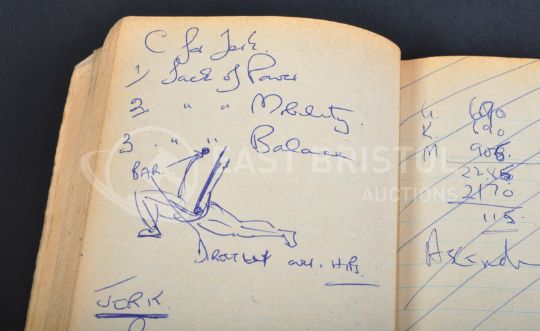 C for Jerk.
1) Lack of Power
2 " " Mobility.
3 " " Balance
BAR.
over. Hips
JERK.
690
K. 690
M 905.
2285
2170
115.
EAST BRISTOL
AUCTIONS